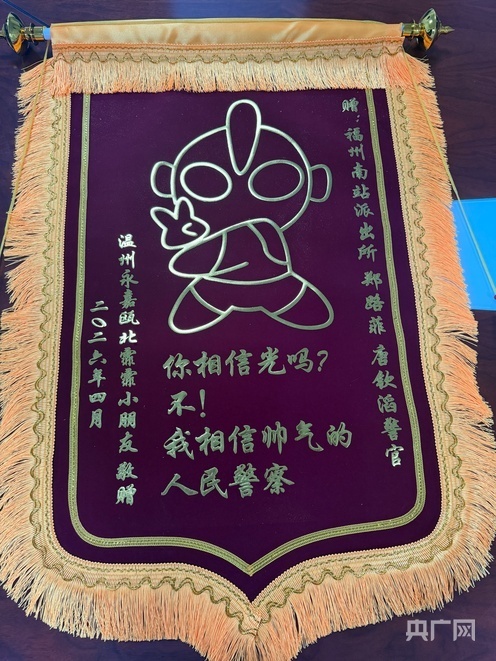 赠：福州南站派出所 郑路菲 唐钦滔警官
你相信光吗？
不！
我相信帅气的
人民警察
温州永嘉瓯北霏霏小朋友 敬赠
二〇二六年四月
央广网